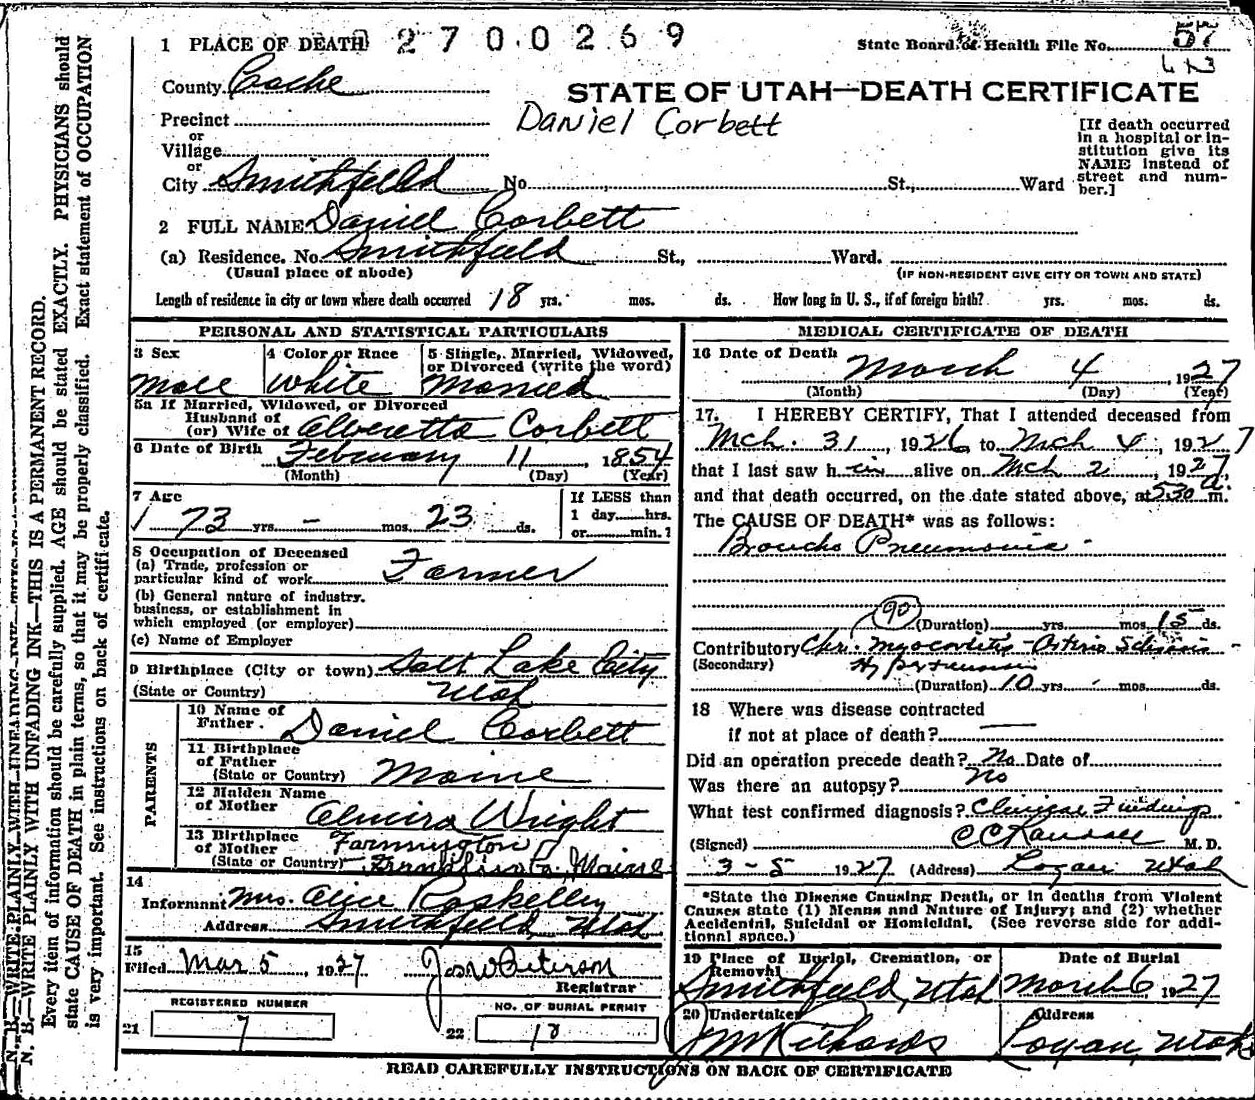 1 PLACE OF DEATH 2700269
State Board of Health File No. 57
County Cache
STATE OF UTAH—DEATH CERTIFICATE
Precinct
Daniel Corbett
or
Village
or
City Smithfield No. St., Ward
[If death occurred
in a hospital or in-
stitution give its
NAME instead of
street and num-
ber.]
2 FULL NAME Daniel Corbett
(a) Residence. No. Smithfield St., Ward.
(Usual place of abode)
(IF NON-RESIDENT GIVE CITY OR TOWN AND STATE)
Length of residence in city or town where death occurred 18 yrs. mos. ds. How long in U. S., if of foreign birth? yrs. mos. ds.
PERSONAL AND STATISTICAL PARTICULARS
3 Sex
Male
4 Color or Race
White
5 Single, Married, Widowed,
or Divorced (write the word)
Married
5a If Married, Widowed, or Divorced
Husband of
(or) Wife of Elveretta Corbett
6 Date of Birth February 11, 1854
(Month) (Day) (Year)
7 Age
73 yrs. – mos. 23 ds.
If LESS than
1 day......hrs.
or.........min.?
8 Occupation of Deceased
(a) Trade, profession or
particular kind of work Farmer
(b) General nature of industry.
business, or establishment in
which employed (or employer)
(c) Name of Employer
9 Birthplace (City or town) Salt Lake City
(State or Country) Utah
PARENTS
10 Name of
Father. Daniel Corbett
11 Birthplace
of Father
(State or Country) Maine
12 Maiden Name
of Mother Elmira Wright
13 Birthplace
of Mother Farmington
(State or Country) Franklin Co., Maine
14
Informant Mrs. Alice Roskelley
Address Smithfield, Utah
15
Filed Mar 5, 1927 Jas W Peterson
Registrar
REGISTERED NUMBER
21 7
NO. OF BURIAL PERMIT
22 18
MEDICAL CERTIFICATE OF DEATH
16 Date of Death
March 4, 1927
(Month) (Day) (Year)
17. I HEREBY CERTIFY, That I attended deceased from
Mch. 31, 1926 to Mch 4, 1927
that I last saw him alive on Mch 2, 1927
and that death occurred, on the date stated above, at 5:30 a. m.
The CAUSE OF DEATH* was as follows:
Broncho Pneumonia
90
(Duration) yrs. mos. 15 ds.
Contributory Chr. Myocarditis – Arterio Sclerosis –
(Secondary) Hypertension
(Duration) 10 yrs. - mos. ds.
18 Where was disease contracted
if not at place of death?
Did an operation precede death? No Date of
Was there an autopsy? No
What test confirmed diagnosis? Clinical Findings
(Signed) C C Randall M. D.
3-5 1927 (Address) Logan Utah
*State the Disease Causing Death, or in deaths from Violent
Causes state (1) Means and Nature of Injury; and (2) whether
Accidental, Suicidal or Homicidal. (See reverse side for addi-
tional space.)
19 Place of Burial, Cremation, or
Removal
Smithfield, Utah
Date of Burial
March 6, 1927
20 Undertaker
J M Richards
Address
Logan, Utah
READ CAREFULLY INSTRUCTIONS ON BACK OF CERTIFICATE
N. B.—WRITE PLAINLY WITH UNFADING INK—THIS IS A PERMANENT RECORD.
Every item of information should be carefully supplied. AGE should be stated EXACTLY. PHYSICIANS should
state CAUSE OF DEATH in plain terms, so that it may be properly classified. Exact statement of OCCUPATION
is very important. See instructions on back of certificate.